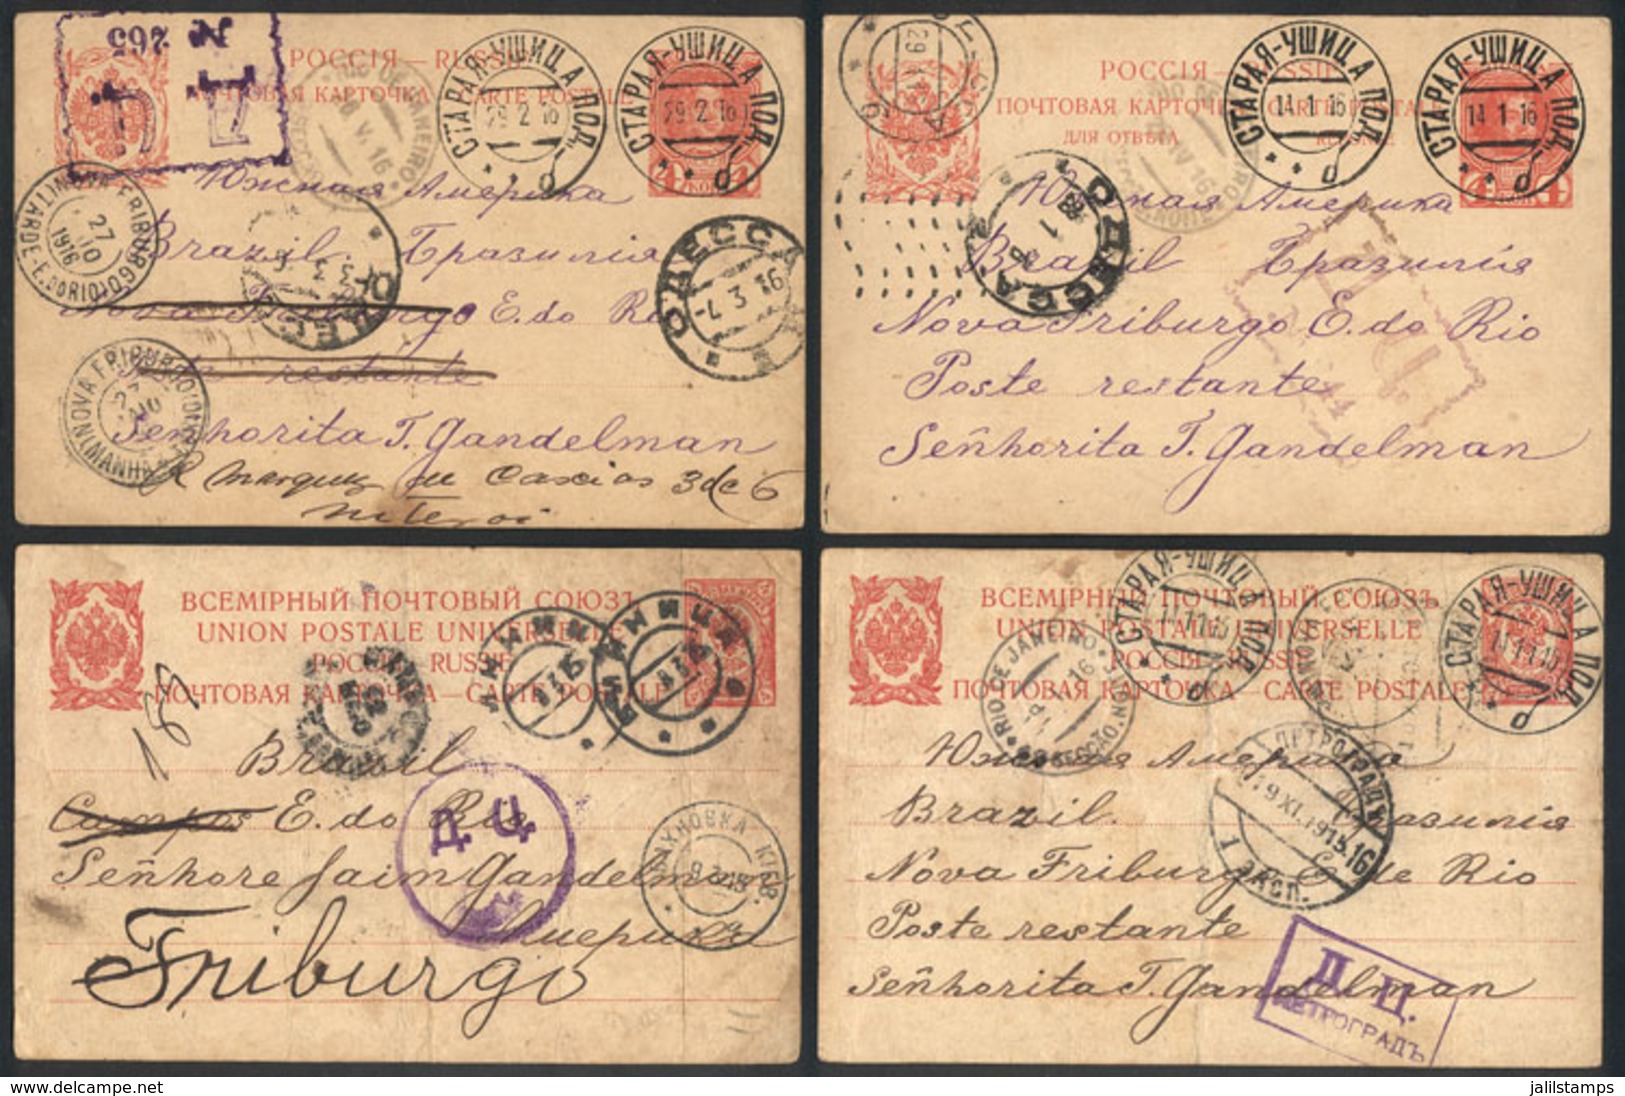 № 265
Д. Ц.
РОССІЯ — RUSSIE
ПОЧТОВАЯ КАРТОЧКА — CARTE POSTALE
СТАРАЯ-УШИЦА ПОД.
29 2 16
СТАРАЯ-УШИЦА ПОД.
29 2 16
4 КОП
RIO DE JANEIRO
V. 16
Южная Америка
Brazil. Бразилія
Nova Friburgo E. do Rio
Poste restante
Señhorita T. Gandelman
R Marquez de Caxias 3 de 6
Niteroi
NOVA FRIBURGO
27 10 1916
TARDE E. DO RIO
NOVA FRIBURGO
MANHA
ОДЕССА
ОДЕССА
-7. 3 16
РОССІЯ — RUSSIE
ПОЧТОВАЯ КАРТОЧКА — CARTE POSTALE
ДЛЯ ОТВѢТА
RÉPONSE
СТАРАЯ-УШИЦА ПОД.
14 1 16
СТАРАЯ-УШИЦА ПОД.
14 1 16
ОДЕССА
Южная Америка
Brazil Бразилія
Nova Friburgo E. do Rio
Poste restante
Señhorita T. Gandelman
ВСЕМІРНЫЙ ПОЧТОВЫЙ СОЮЗЪ
UNION POSTALE UNIVERSELLE
РОССІЯ — RUSSIE
ПОЧТОВАЯ КАРТОЧКА — CARTE POSTALE
Brazil
Campos E. do Rio
Señhore Jaim Gandelman
Америка
Friburgo
Д Ц
МАХНОВКА КІЕВ.
ВСЕМІРНЫЙ ПОЧТОВЫЙ СОЮЗЪ
UNION POSTALE UNIVERSELLE
РОССІЯ — RUSSIE
ПОЧТОВАЯ КАРТОЧКА — CARTE POSTALE
СТАРАЯ-УШИЦА ПОД.
СТАРАЯ-УШИЦА ПОД.
RIO DE JANEIRO
ПЕТРОГРАДЪ
9 XI. 1915. 16
1 ЭКСП.
Южная Америка
Brazil. Бразилія
Nova Friburgo E. do Rio
Poste restante
Señhorita T. Gandelman
Д. Ц.
ПЕТРОГРАДЪ
jalilstamps